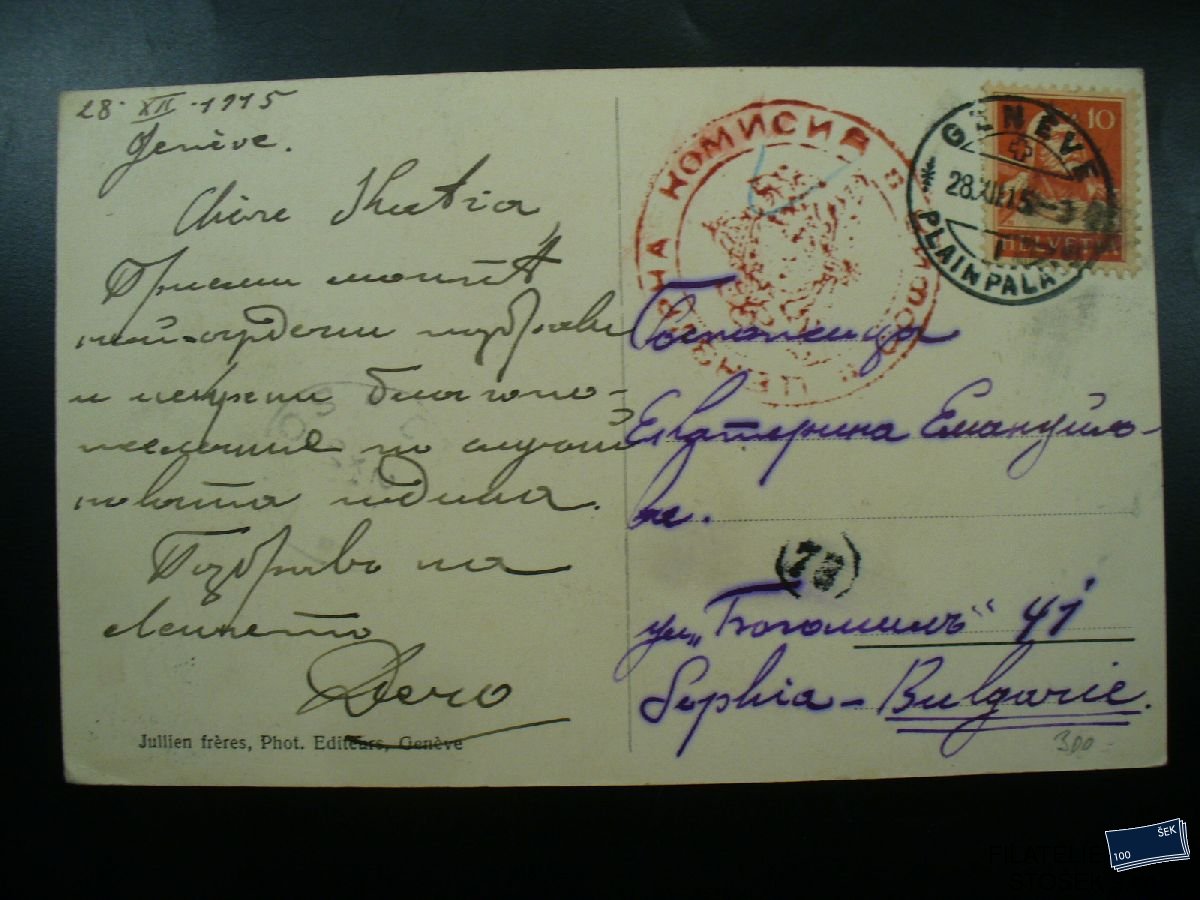 28 XII 1915
Genève.
Chère Katia,
Приеми моитѣ
най-сърдечни поздрави
и искрени благопо-
желание по случай
новата година.
Поздравь на
Jullien frères, Phot. Editeurs, Genève
ЦЕНЗУРНА КОМИСИЯ В СОФИЯ
GENÈVE
28.XII.15
PLAINPALAIS
10
HELVETIA
Госпожица
Екатерина Емануило-
ва.
73
ул. „Богомилъ“ 41
Sophia - Bulgarie.
300-
100 ŠEK
FILATELIE